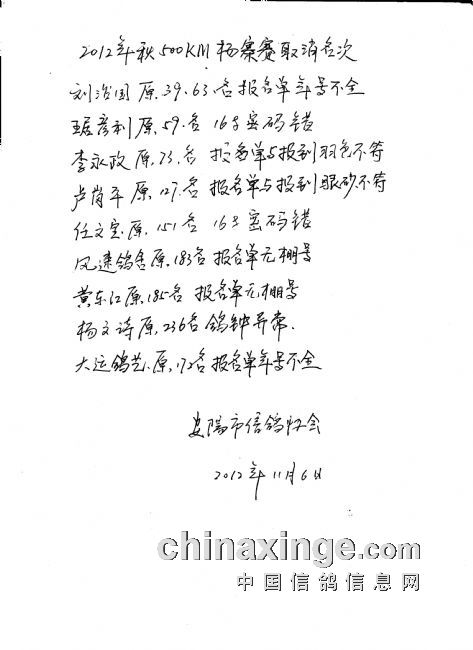 2012年秋500KM杨寨赛取消名次
刘治国原.39.63名报名单年号不全
琚彦利原.59.名16字密码错
李永政原.73.名报名单与报到羽色不符
卢岗平原.127.名报名单与报到眼砂不符
任文宝原.151名16字密码错
风速鸽舍原.183名报名单无棚号
黄东江原.185名报名单无棚号
杨文诗原.236名鸽钟异常.
大运鸽艺.原.172名报名单年号不全
安陽市信鸽协会
2012年11月6日
chinaxinge.com
中国信鸽信息网